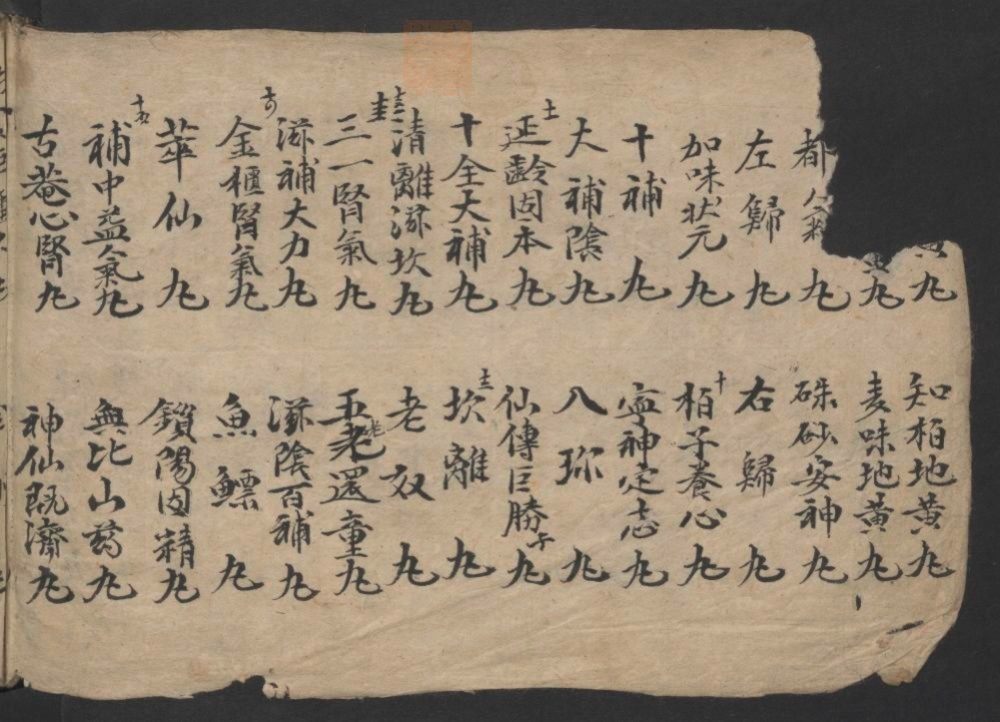 黃丸
黃丸
都氣丸
左歸丸
加味状元丸
十補丸
大補陰丸
延齡固本丸
十全大補丸
清離滋坎丸
三一腎氣丸
滋補大力丸
金櫃腎氣丸
萃仙丸
補中益氣丸
古菴心腎丸
知柏地黄丸
麦味地黄丸
硃砂安神丸
右歸丸
十
柏子養心丸
寧神定志丸
八珎丸
仙傳巨勝子丸
坎離丸
老奴丸
五老還童丸
滋陰百補丸
魚鰾丸
鎖陽固精丸
無比山葯丸
神仙既濟丸